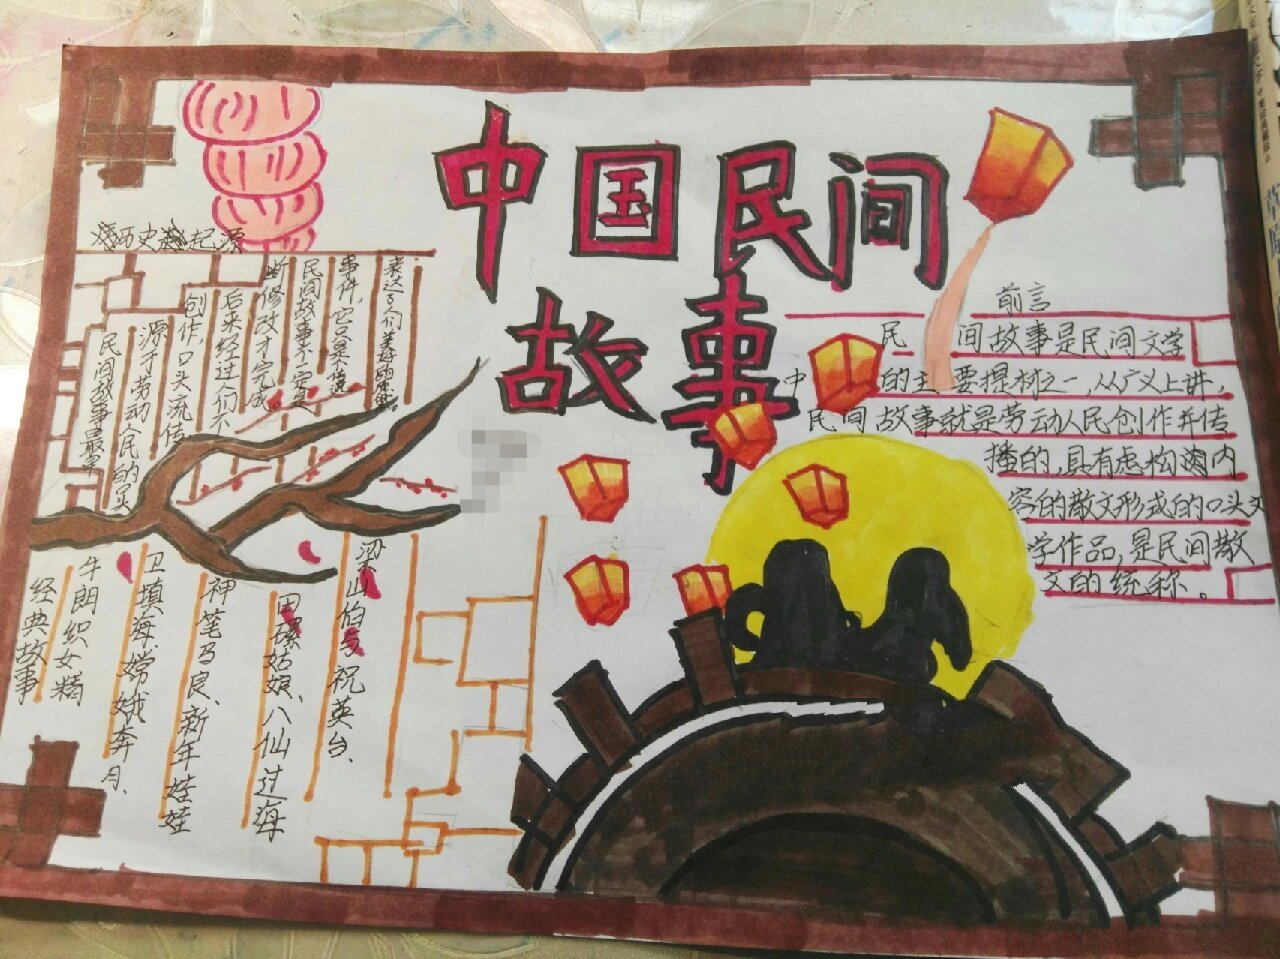 中国民间
故事
历史起源
民间故事最早
源于劳动人民的
创作,口头流传
后来经过人们不
断修改才完成
民间故事不一定是
事件,它只是
表达了人们美好的
前言
民间故事是民间文学
中的主要提材之一,从广义上讲,
民间故事就是劳动人民创作并传
播的,具有虚构内
容的散文形式的口头文
学作品,是民间散
文的统称。
经典故事
牛朗织女精
卫填海、嫦娥奔月、
神笔马良、新年娃娃
田螺姑娘、八仙过海
梁山伯与祝英台、